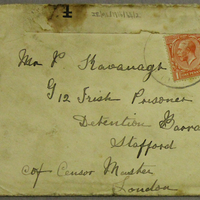 Mr P Kavanagh
G12 Irish Prisoner
Detention Barra
Stafford
c/o Censor
London